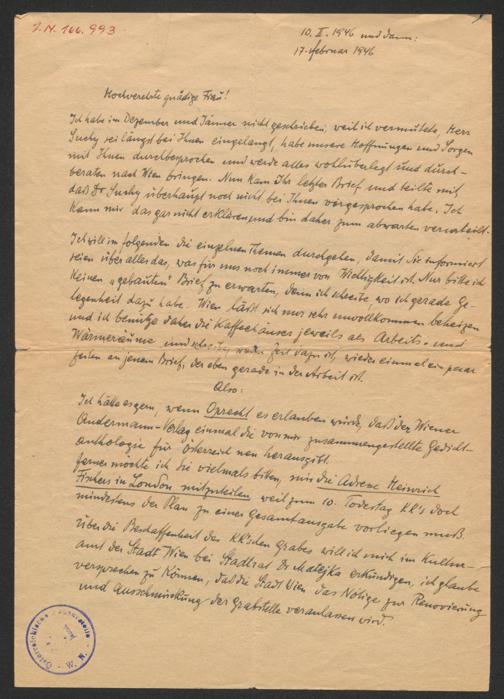 I.N. 166.993
10. II. 1946 und dann:
17. Februar 1946
Hochverehrte gnädige Frau!
Ich habe im Dezember und Jänner nicht geschrieben, weil ich vermutete, Herr
Suchy sei längst bei Ihnen eingelangt, habe unsere Hoffnungen und Sorgen
mit Ihnen durchbesprochen und werde alles wohlüberlegt und durch-
beraten nach Wien bringen. Nun kam Ihr letzter Brief und teilte mit,
daß Dr Suchy überhaupt noch nicht bei Ihnen vorgesprochen habe. Ich
kann mir das gar nicht erklären und bin daher zum abwarten verurteilt.
Ich will im folgenden die einzelnen Themen durchgehen, damit Sie informiert
seien über alles das, was für uns noch immer von Wichtigkeit ist. Nur bitte ich
keinen „gebauten“ Brief zu erwarten, denn ich schreibe, wo ich gerade Ge-
legenheit dazu habe. Wien läßt sich nur sehr unvollkommen beheizen
und ich benütze daher die Kaffeehäuser jeweils als Arbeits- und
Wärmeräume und schreibe, wenn Zeit dazu ist, wieder einmal ein paar
Zeilen an jenem Brief, der eben gerade in der Arbeit ist.
Also:
Ich hätte es gern, wenn Oprecht es erlauben würde, daß der Wiener
Andermann-Verlag einmal die von mir zusammengestellte Gedicht-
anthologie für Österreich neu herausgibt.
Ferner möchte ich Sie vielmals bitten, mir die Adresse Heinrich
Fischers in London mitzuteilen, weil zum 10. Todestag KK's doch
mindestens der Plan zu einer Gesamtausgabe vorliegen muß.
Über die Beschaffenheit des KK'schen Grabes will ich mich im Kultur-
amt der Stadt Wien bei Stadtrat Dr Matejka erkundigen, ich glaube
versprechen zu können, daß die Stadt Wien das Nötige zur Renovierung
und Ausschmückung der Grabstelle veranlassen wird.
W. N.